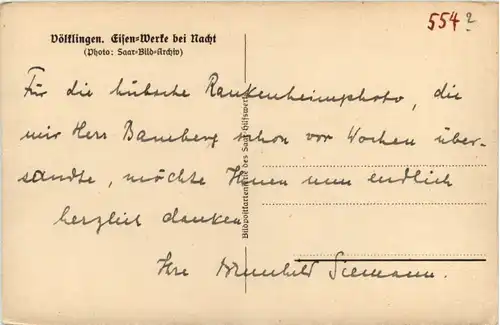 554 2
Völklingen. Eisen=Werke bei Nacht
(Photo: Saar=Bild=Archiv)
Für die hübsche Rankenheimphoto, die
mir Herr Bamberg schon vor Wochen über-
sandte, möchte Ihnen nun endlich
herzlich danken
Ihre Brunhild Siemann.
Bildpostkartenreihe des Saar-Hilfswerk